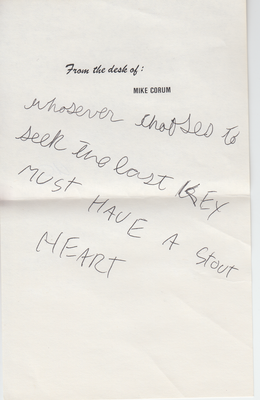 From the desk of:
MIKE CORUM
whosever chooses to
seek the last KEY
MUST HAVE A STOUT
HEART